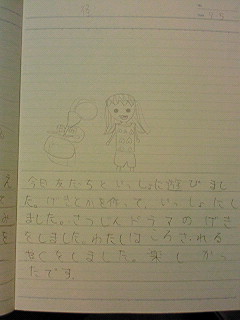 今日友だちといっしょに遊びまし
た。げきとかを作って、いっしょにし
ました。さつじんドラマのげき
をしました。わたしはころされる
やくをしました。楽しかっ
たです。